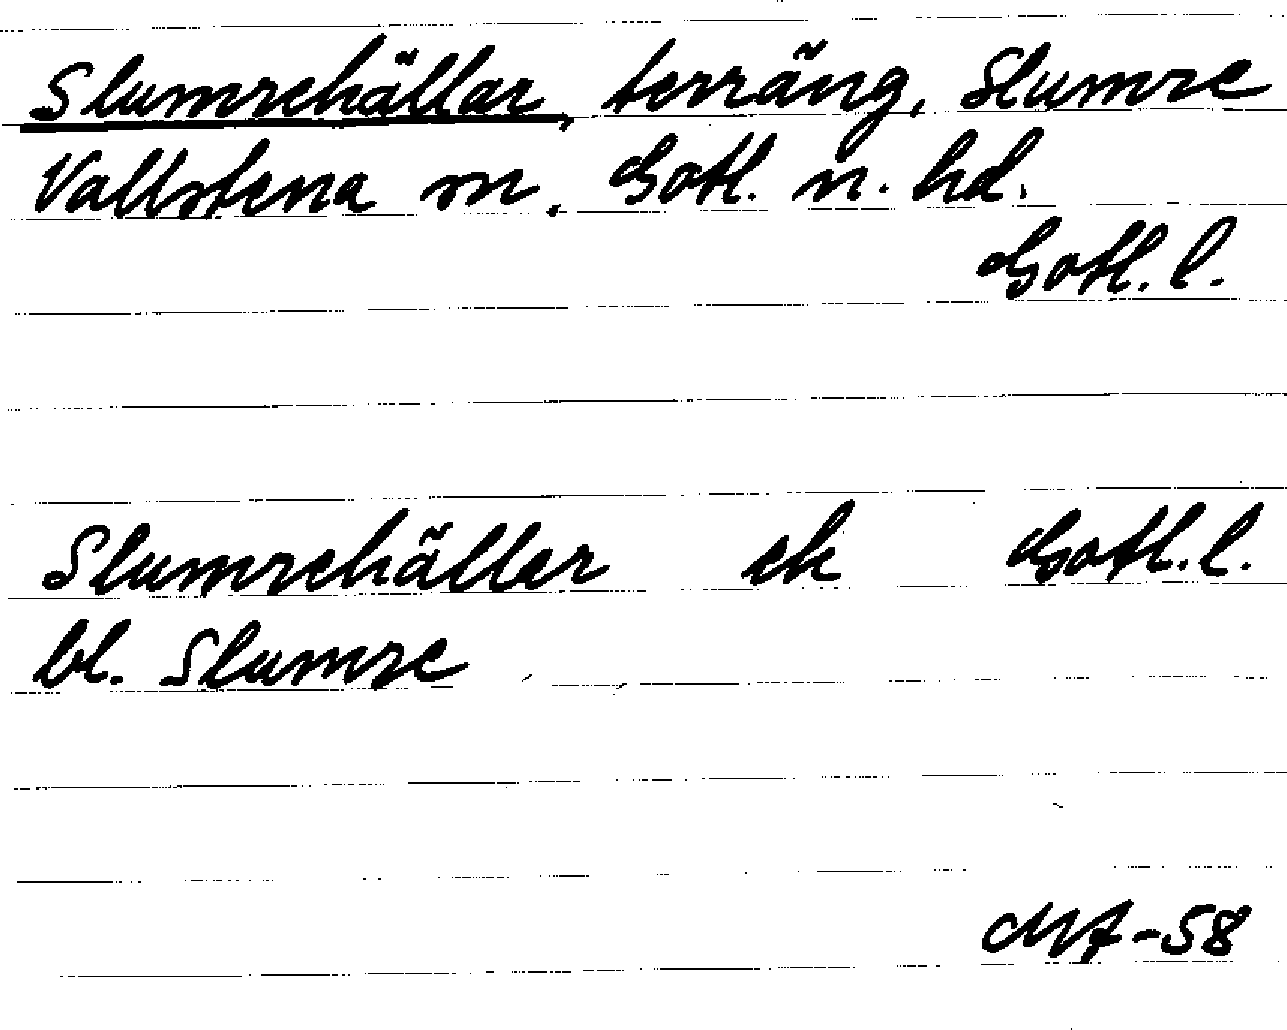 Slumrehällar, terräng, Slumre
Vallstena sn. Gotl. n. hd.
Gotl. l.
Slumrehällar ek Gotl. l.
bl. Slumre
MA-58